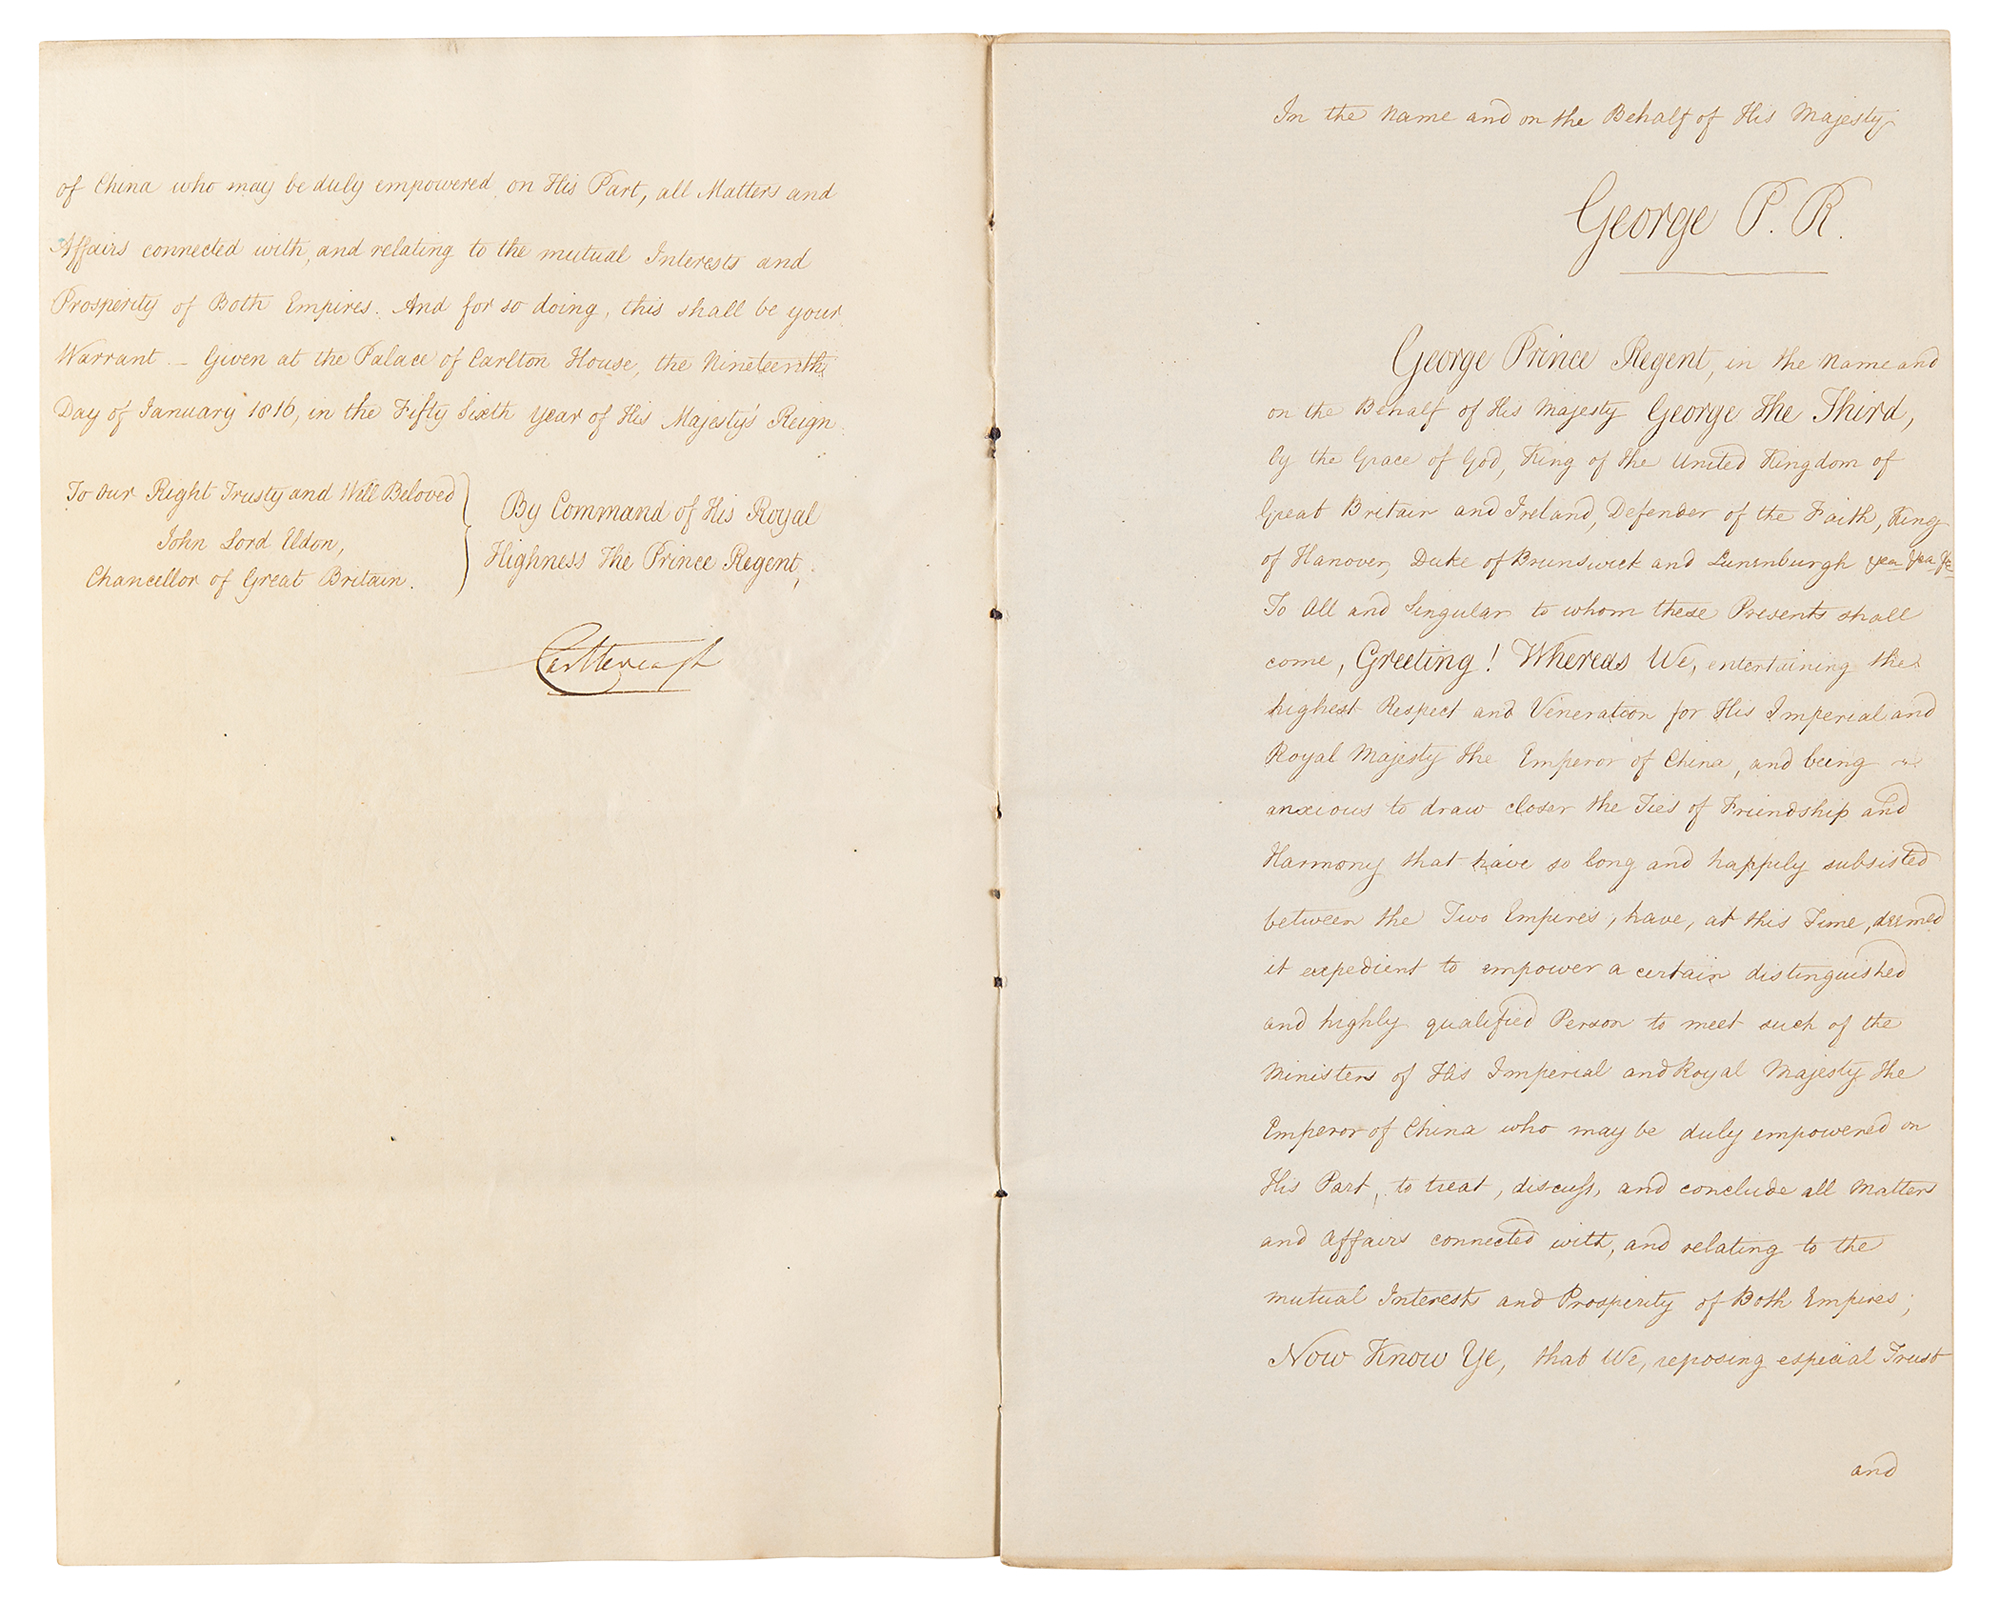 of China who may be duly empowered, on His Part, all Matters and
Affairs connected with, and relating to the mutual Interests and
Prosperity of Both Empires. And for so doing, this shall be your
Warrant – Given at the Palace of Carlton House, the Nineteenth
Day of January 1816, in the Fifty Sixth year of His Majesty's Reign
To Our Right Trusty and Well Beloved
John Lord Eldon,
Chancellor of Great Britain.
By Command of His Royal
Highness The Prince Regent,
Castlereagh
In the Name and on the Behalf of His Majesty
George P. R.
George Prince Regent, in the Name and
on the Behalf of His Majesty George the Third,
by the Grace of God, King of the United Kingdom of
Great Britain and Ireland, Defender of the Faith, King
of Hanover, Duke of Brunswick and Lunenburgh &ca &ca &c
To All and Singular to whom these Presents shall
come, Greeting! Whereas We, entertaining the
highest Respect and Veneration for His Imperial and
Royal Majesty the Emperor of China, and being
anxious to draw closer the Ties of Friendship and
Harmony that have so long and happily subsisted
between the Two Empires, have, at this Time, deemed
it expedient to empower a certain distinguished
and highly qualified Person to meet such of the
Ministers of His Imperial and Royal Majesty the
Emperor of China who may be duly empowered on
His Part, to treat, discuss, and conclude all Matters
and Affairs connected with, and relating to the
mutual Interests and Prosperity of Both Empires;
Now Know Ye, that We, reposing especial Trust
and